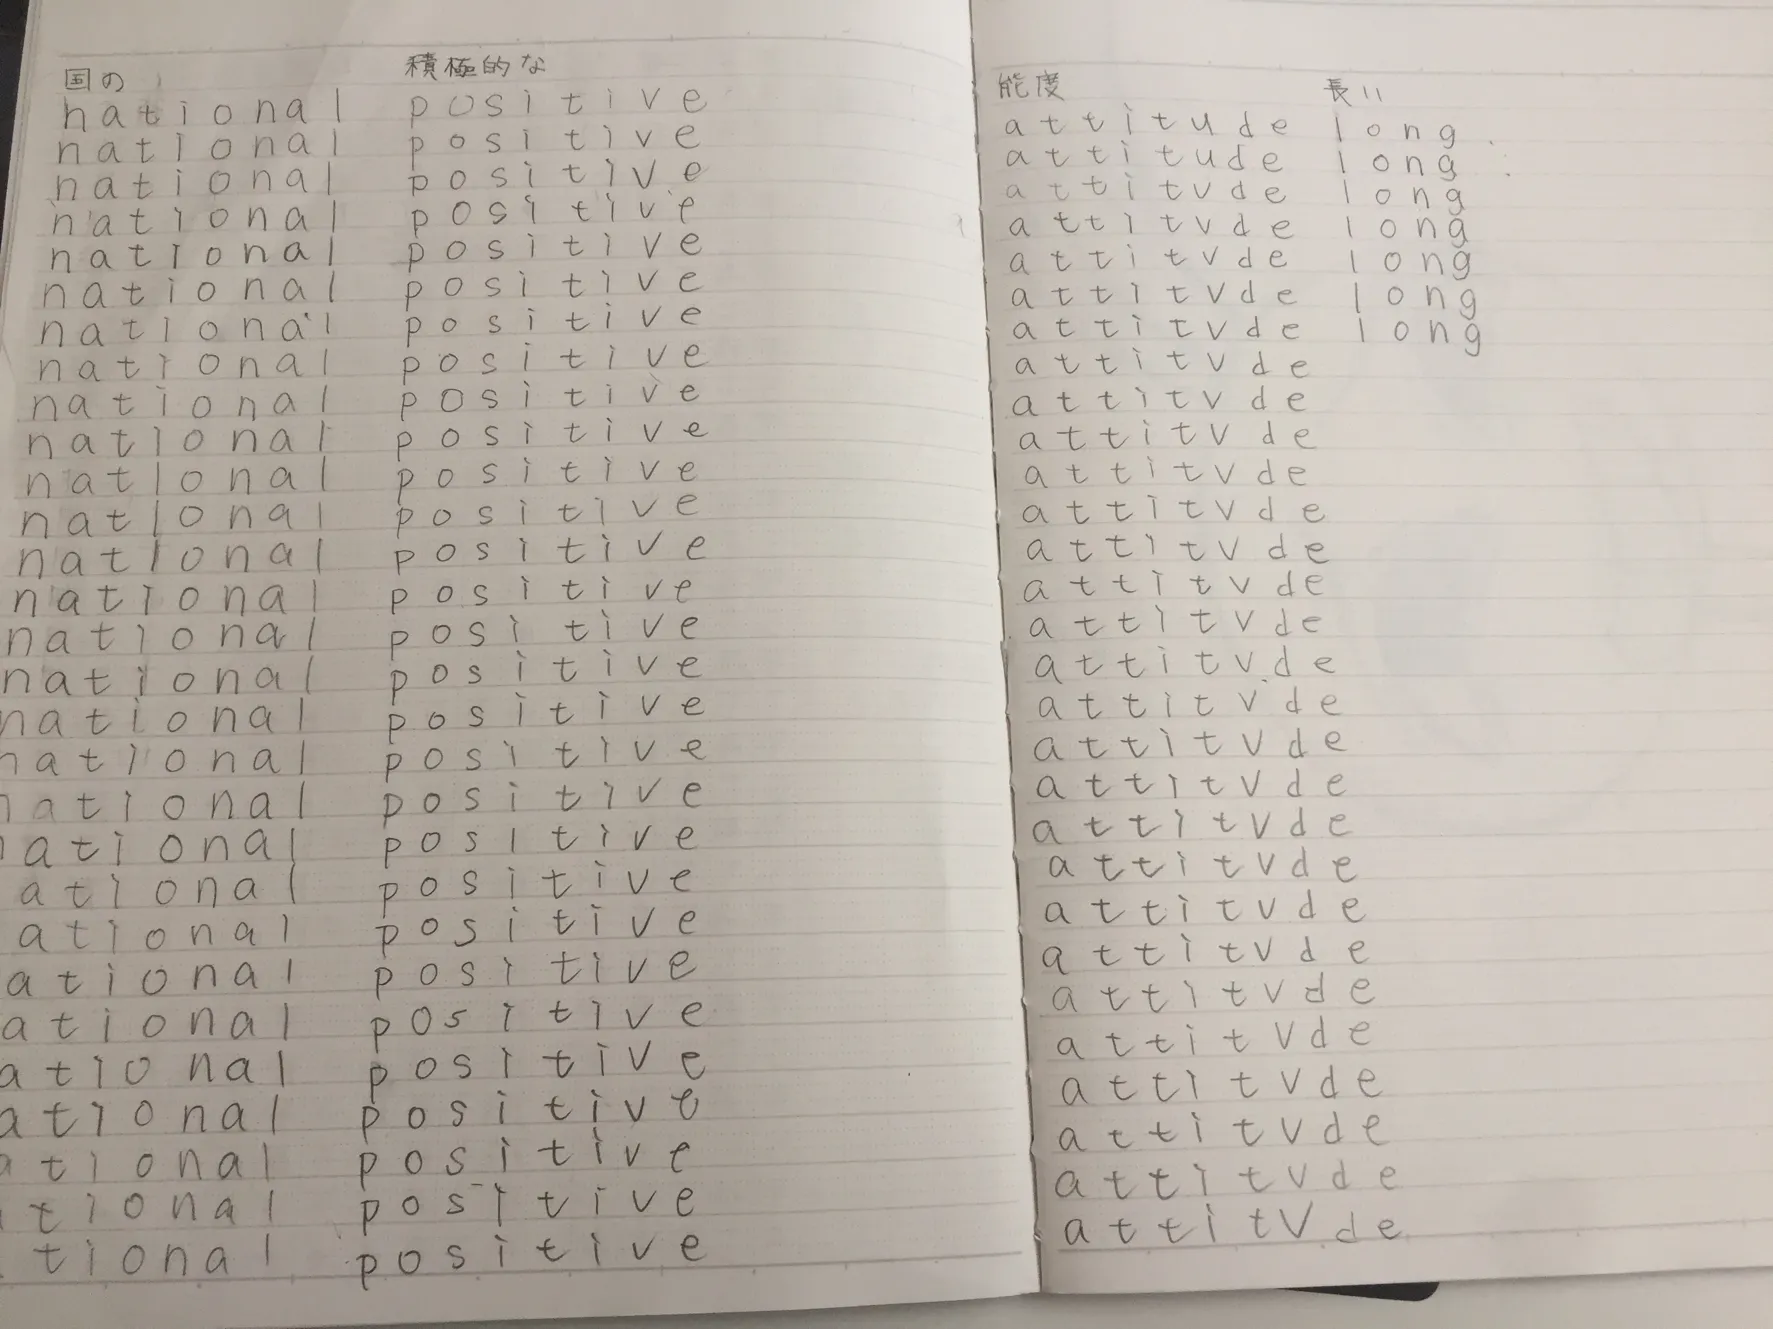 国の
national
national
national
national
national
national
national
national
national
national
national
national
national
national
national
national
national
national
national
ational
ational
ational
ational
ational
ational
ational
ational
tional
tional
積極的な
positive
positive
positive
positive
positive
positive
positive
positive
positive
positive
positive
positive
positive
positive
positive
positive
positive
positive
positive
positive
positive
positive
positive
positive
positive
positive
positive
positive
positive
能度
attitude
attitude
attitvde
attitvde
attitvde
attitvde
attitvde
attitvde
attitvde
attitvde
attitvde
attitvde
attitvde
attitvde
attitvde
attitvde
attitvde
attitvde
attitvde
attitvde
attitvde
attitvde
attitvde
attitvde
attitvde
attitvde
attitvde
attitvde
attitvde
長い
long
long
long
long
long
long
long